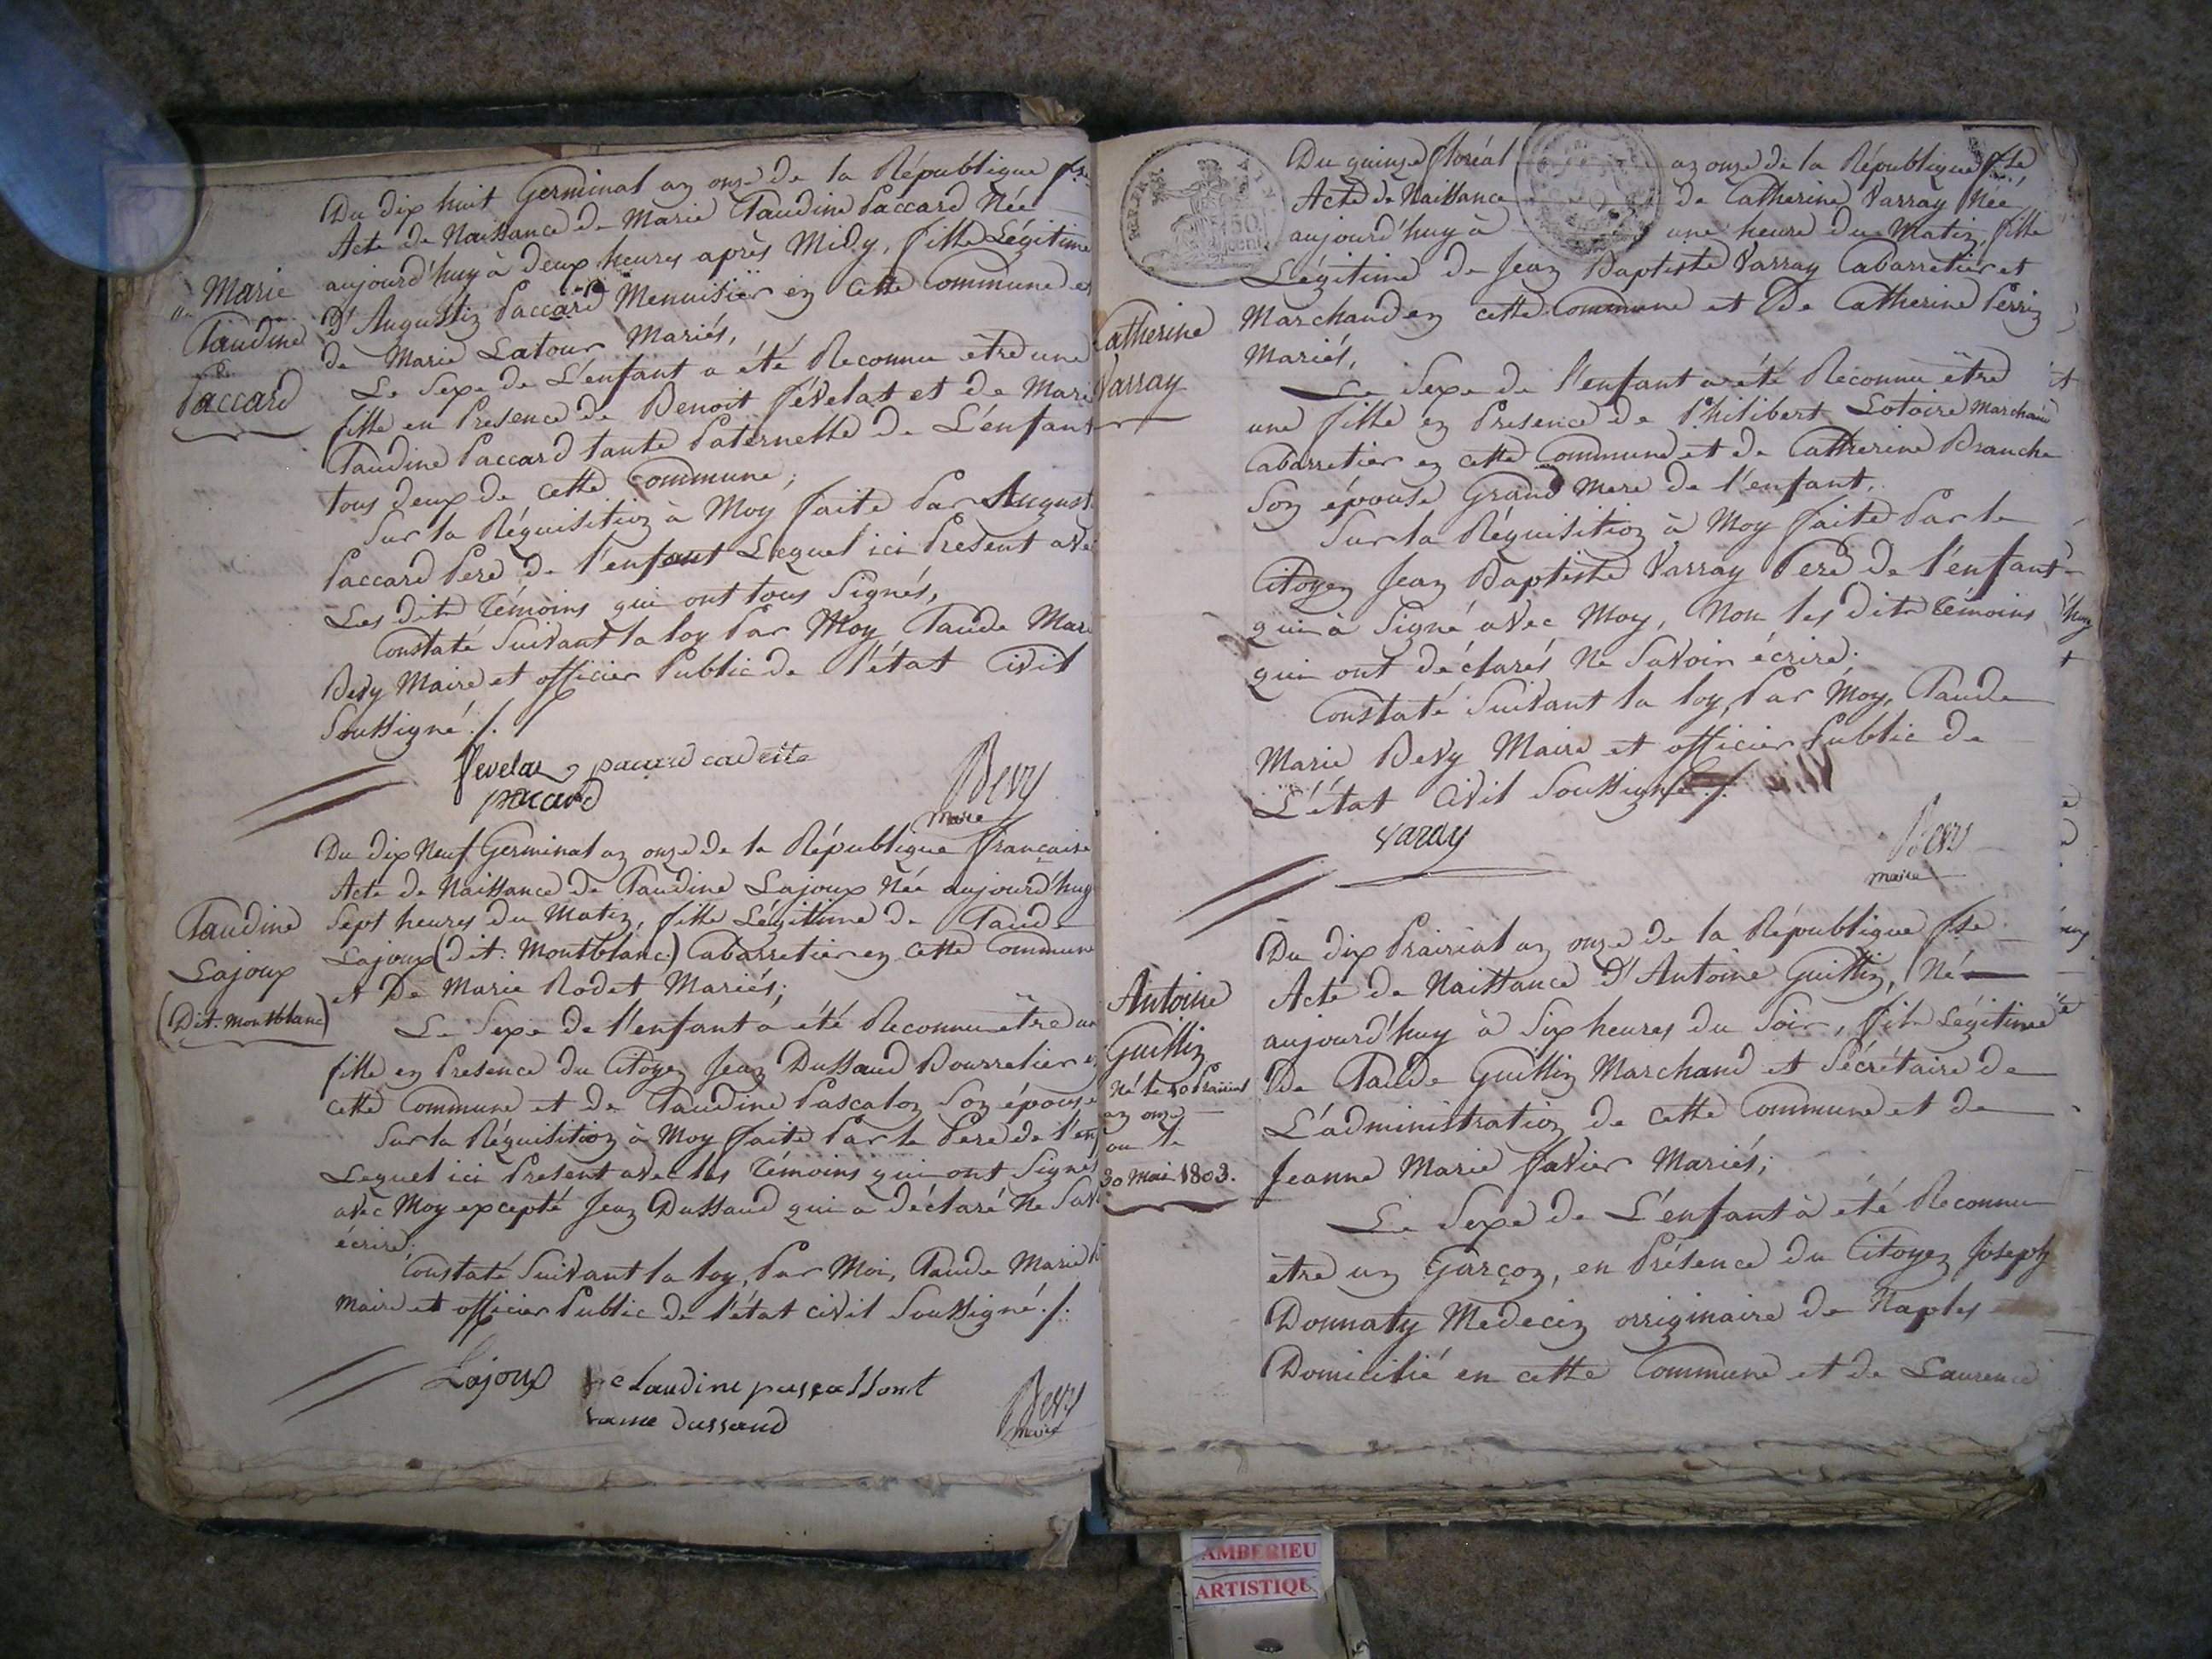 Marie
Claudine
Paccard
Du dix huit Germinal an onze de la République fse.
Acte de Naissance de Marie Claudine Paccard Née
aujourd'huy à deux heures après Midy, fille Légitime
D'Augustin Paccard Menuisier en cette Commune et
de Marie Latour Mariés,
Le Sexe de L'enfant a été Reconnu être une
fille en Presence de Benoit Févelat et de Marie
Claudine Paccard tante Paternelle de L'enfant
tous deux de cette Commune;
Sur la Réquisition à Moy faite Par August
Paccard Pere de l'enfant Lequel ici Present avec
Les dits Témoins qui ont tous Signés,
Constaté Suivant la loy Par Moy Claude Marie
Bevy Maire et officier Public de l'état Civil
Soussigné ./.
Fevelat paccard cadette
paccard
Bevy
Maire
Claudine
Lajoux
(Dit. Montblanc)
Du dix Neuf Germinal an onze de la République française
Acte de Naissance de Claudine Lajoux Née aujourd'huy
Sept heures du Matin, fille Légitime de Claude
Lajoux (dit: Montblanc) Cabarretier en cette Commune
et De Marie Rodet Mariés;
Le Sexe de l'enfant a été Reconnu être une
fille en Presence du Citoyen Jean Dussaud Bourrelier en
cette Commune et de Claudine Pascalon Son épouse
Sur la Réquisition à Moy faite Par le Pere de l'enf
Lequel ici Present avec les Témoins qui ont Signés
avec Moy excepté Jean Dussaud qui a déclaré Ne Sav
écrire;
Constaté Suivant la loy, Par Moi, Claude Marie B
Maire et officier Public de l'état civil Soussigné ./.
Lajoux
fame dussaud
Bevy
Maire
Catherine
Varray
Du quinze floréal an onze de la République fse
Acte de Naissance de Catherine Varray Née
aujourd'huy à une heure du Matin, fille
Légitime de Jean Baptiste Varray Cabarretier et
Marchand en cette Commune et De Catherine Perrin
Mariés,
Le Sexe de l'enfant a été Reconnu être
une fille en Presence de Philibert Lotoire Marchand
Cabarretier en cette Commune et de Catherine Branche
Son épouse Grand Mere de l'enfant,
Sur la Réquisition à Moy faite Par le
Citoyen Jean Baptiste Varray Pere de l'enfant
qui à Signé avec Moy, Non les dits Témoins
qui ont déclarés Ne Savoir écrire;
Constaté Suivant la loy, Par Moy, Claude
Marie Bevy Maire et officier Public de
L'état Civil Soussigné ./.
Varay
Bevy
maire
Antoine
Guillin
Né le 10 Prairial
an onze
ou le
30 Mai 1803.
Du dix Prairial an onze de la République fse
Acte de Naissance D'Antoine Guillin, Né
aujourd'huy à Six heures du Soir, fils Légitime
De Claude Guillin Marchand et Sécrétaire de
L'administration de cette Commune et de
Jeanne Marie favier Mariés;
Le Sexe de L'enfant à été Reconnu
être un Garçon, en Présence du Citoyen Joseph
Donnaty Medecin orriginaire de Naples
Domicilié en cette Commune et de Laurence
AMBERIEU
ARTISTIQUE